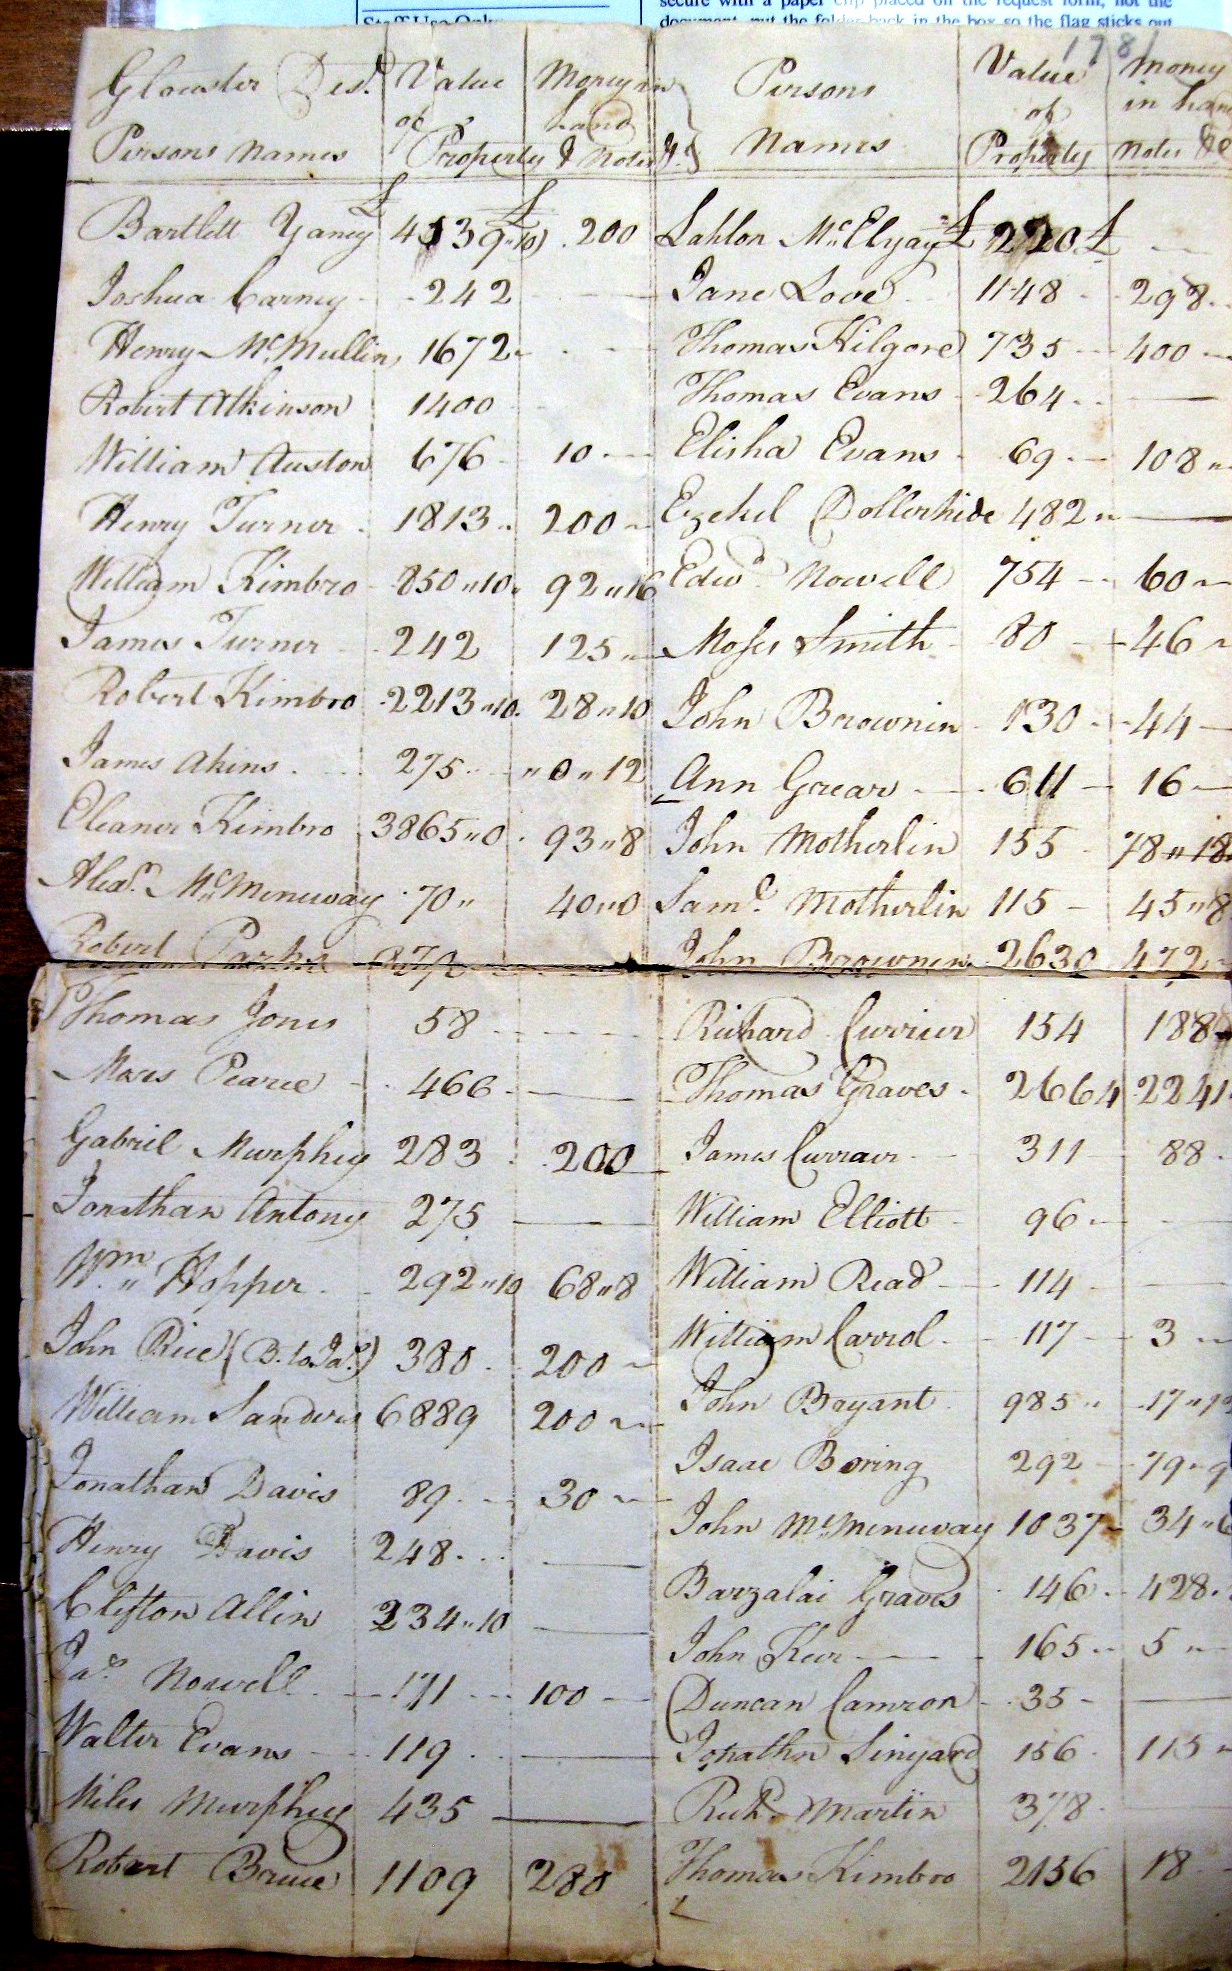 secure with a paper clip placed on the request form, not the
document, put the folder back in the box so the flag sticks out
Staff Use Only
1781
Glouster Dist. Value Money in
of hand
Persons Names Property & Notes &c.
Bartlett Yancy £ 4339"10 £ 200
Joshua Carney 242
Henry McMullin 1672
Robert Atkinson 1400
William Auston 676 10
Henry Turner 1813 200
William Kimbro 850"10 92"16
James Turner 242 125
Robert Kimbro 2213"10 28"10
James Akins 275 "0"12
Eleaner Kimbro 3865"0 93"8
Alexr. McMeneway 70" 40"0
Robert Parks
Thomas Jones 58
Mars Pearce 466
Gabriel Murphey 283 200
Jonathan Antony 275
Wm. Hopper 292"10 68"8
John Rice (B. to Jas.) 380 200
William Sanders 6889 200
Jonathan Davis 89 30
Henry Davis 248
Clifton Allin 234"10
Jas. Nowell 171 100
Walter Evans 119
Miles Murphey 435
Robert Bruce 1109 280
Persons Value Money
of in hand
Names Property Notes &c
Lahlon McElyay £ 220 £
Jane Love 1148 298
Thomas Kilgore 735 400
Thomas Evans 264
Elisha Evans 69 108"
Ezekel Dollerhide 482"
Edwd. Nowell 754 60
Moses Smith 80 46
John Brownin 130 44
Ann Grear 611 16
John Motherlin 155 78"18
Saml. Motherlin 115 45"8
John Brownen 2630 472
Richard Currier 154 188
Thomas Graves 2664 2241
James Curraer 311 88
William Elliott 96
William Read 114
William Carrol 117 3
John Bryant 985" 17"
Isaac Boring 292 79"9
John McMeneway 1037 34"6
Barzalai Graves 146 428
John Kerr 165 5"
Duncan Camron 35
Jonathn Sinyard 156 115
Richd. Martin 378
Thomas Kimbro 2156 18